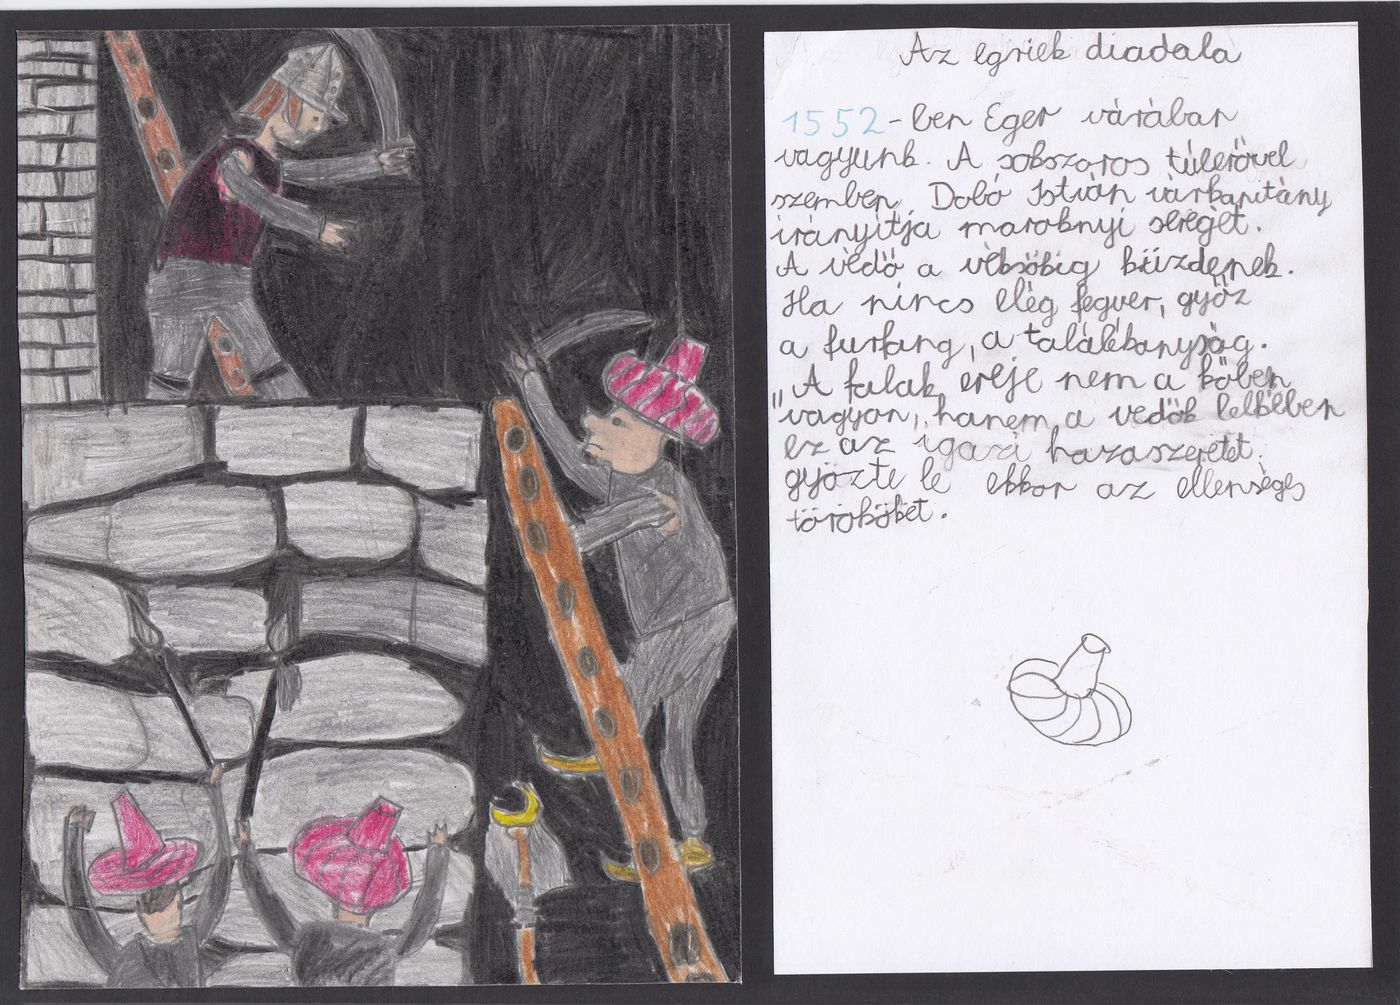 Az egriek diadala
1552-ben Eger várában
vagyunk. A sokszoros túlerővel
szemben Dobó István várkapitány
irányítja maroknyi seregét.
A védő a végsőkig küzdenek.
Ha nincs elég fegver, győz
a furfang, a találékonyság.
"A falak ereje nem a kőben
vagyon, hanem a védők lelkében
ez az igazi hazaszeretet.
győzte le ekkor az ellenséges
törököket.